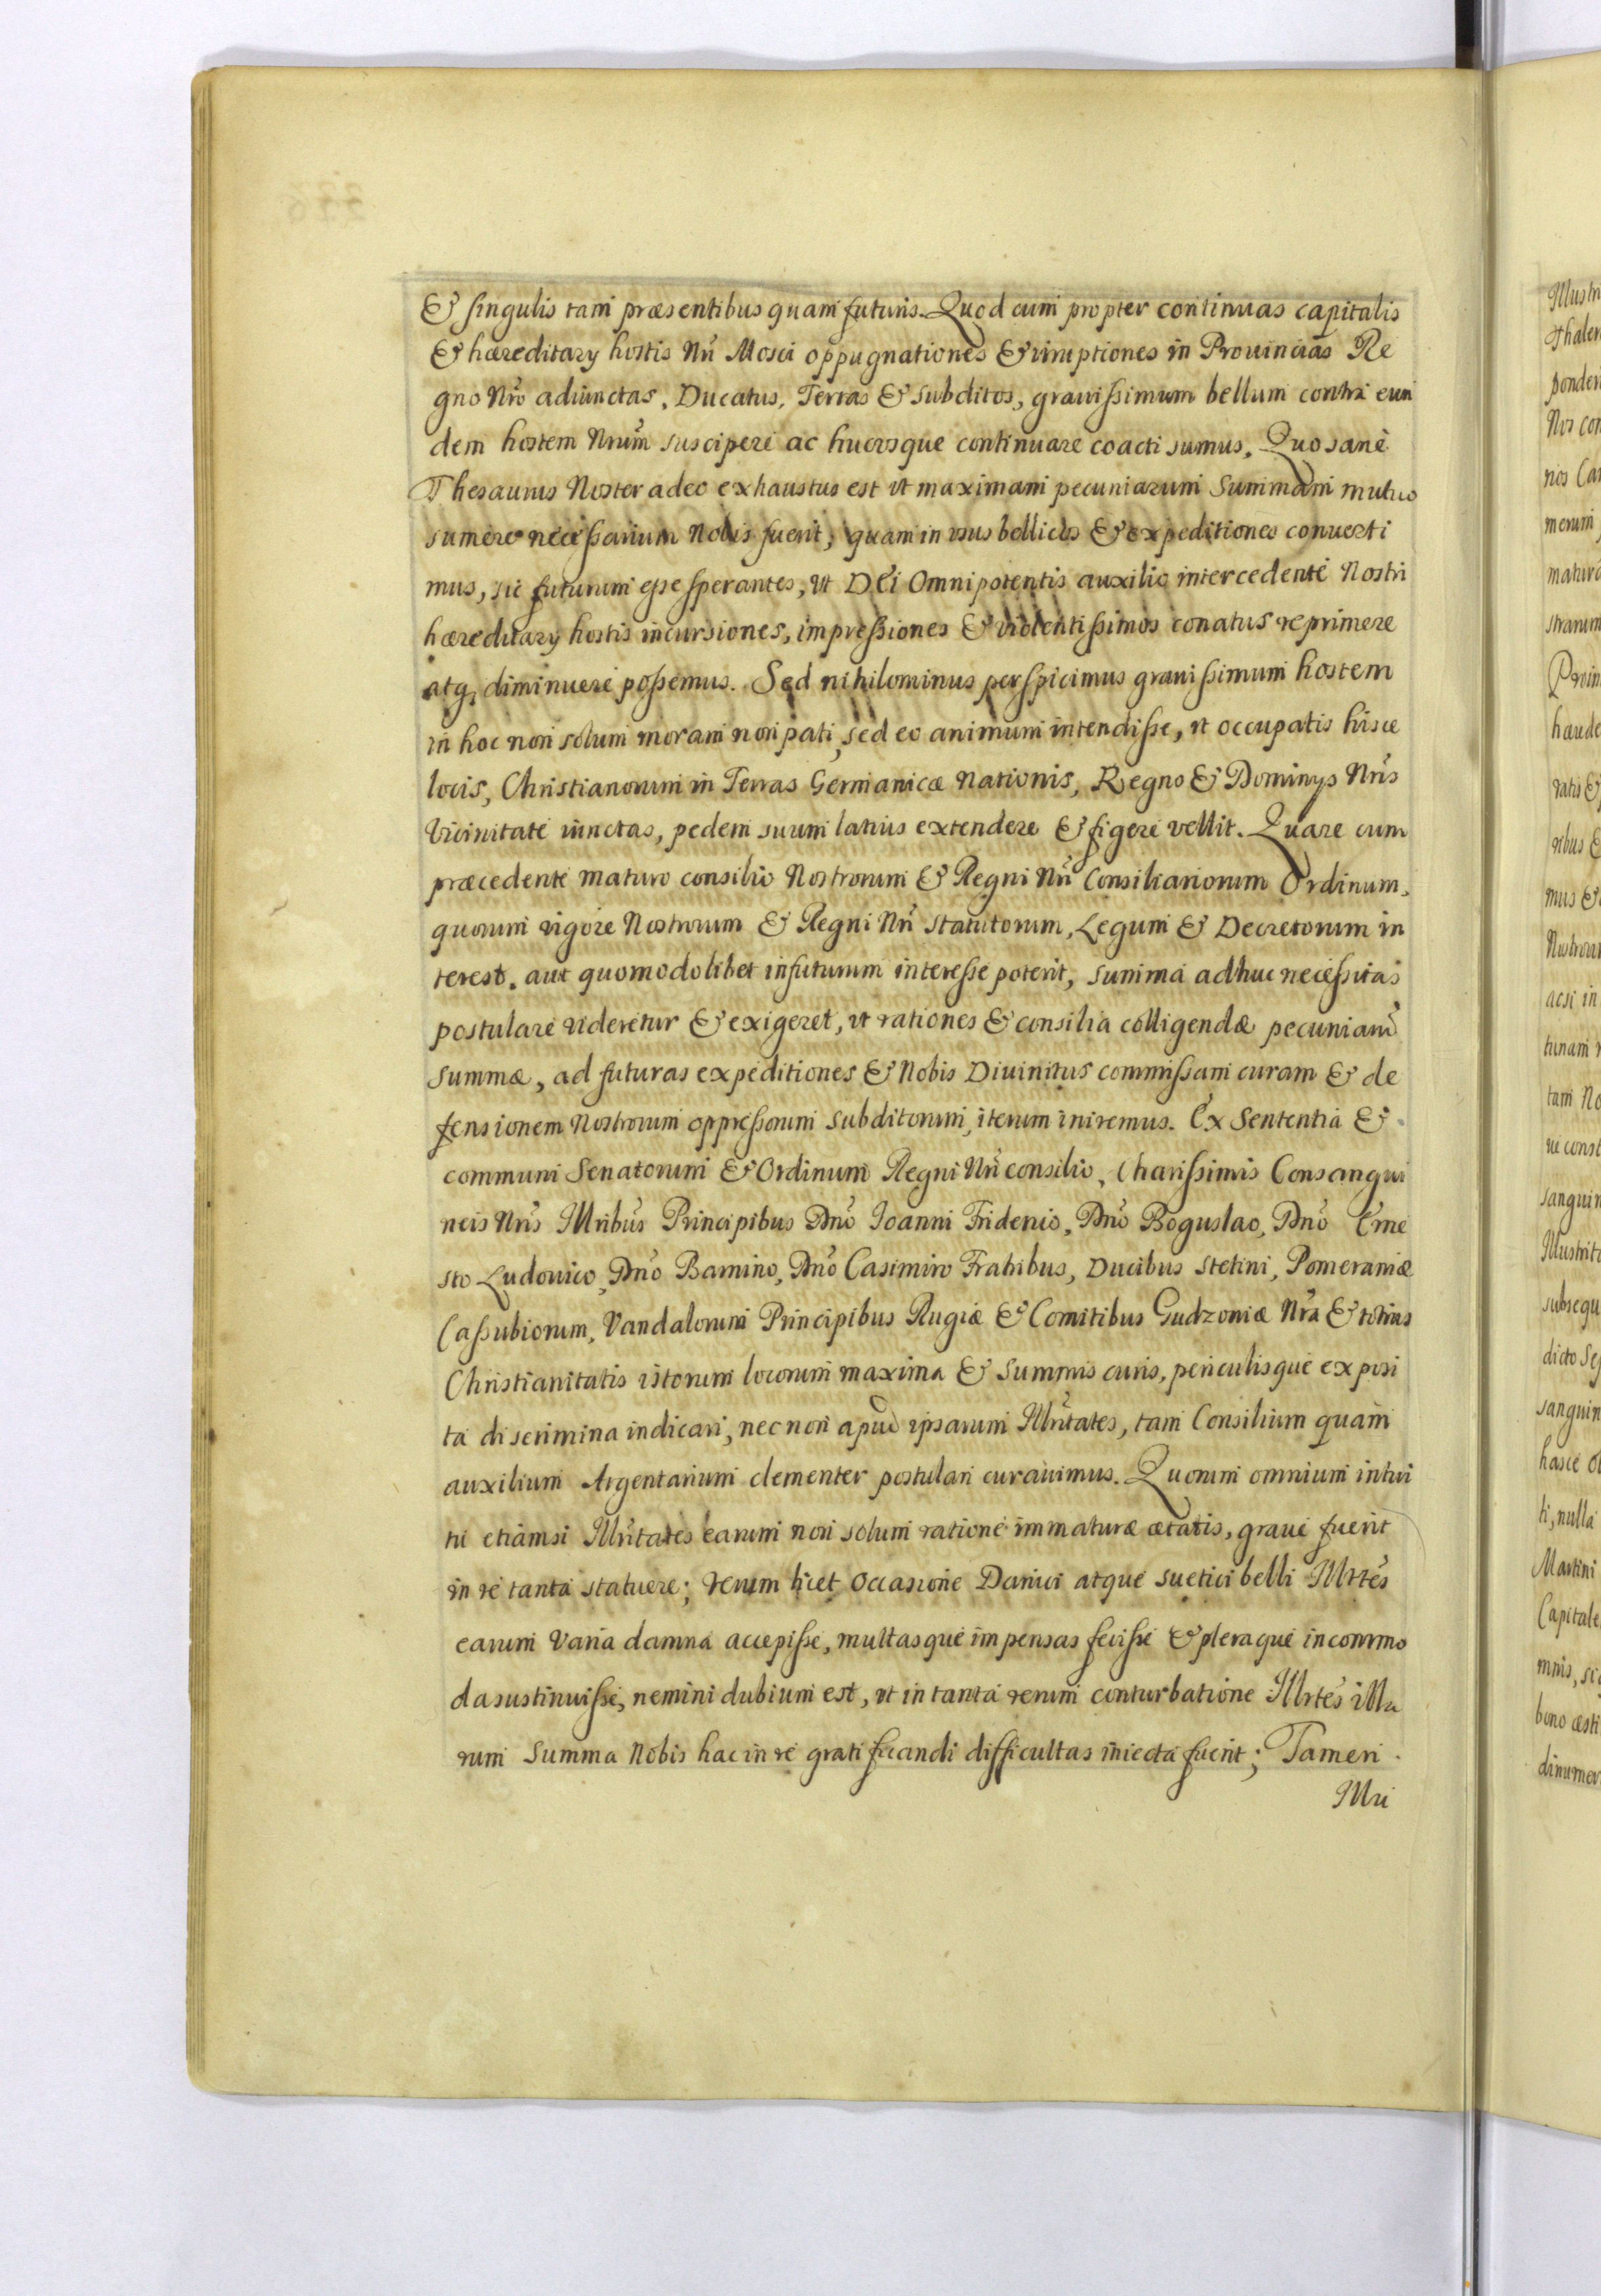 & singulis tam præsentibus quam futuris. Quod cum propter continuas capitalis
& hæreditarÿ hostis Nri Mosci oppugnationes & irruptiones in Prouincias Re
gno Nro adiunctas, Ducatus, Terras & subditos, grauissimum bellum contra eun
dem hostem Nrum suscipere ac hucusque continuare coacti sumus. Quo sanè
Thesaurus Noster adeo exhaustus est vt maximam pecuniarum Summam mutuo
sumere necessarium Nobis fuerit, quam in vsus bellicos & expeditiones conuerti
mus, sic futurum esse sperantes, vt Dei Omnipotentis auxilio intercedente Nostri
hæreditarÿ hostis incursiones, impressiones & violentissimos conatus reprimere
atq, diminuere possemus. Sed nihilominus perspicimus grauissimum hostem
in hoc non solum moram non pati, sed eo animum intendisse, vt occupatis hisce
locis, Christianorum in Terras Germanicæ Nationis, Regno & Dominÿs Nris
Vicinitate iunctas, pedem suum latius extendere & figere vellit. Quare cum
præcedente maturo consilio Nostrorum & Regni Nri Consiliariorum Ordinum,
quorum vigore Nostrorum & Regni Nri Statutorum, Legum & Decretorum in
terest. aut quomodolibet in futurum interesse poterit, summa adhuc necessitas
postulare videretur & exigeret, vt rationes & consilia colligendæ pecuniariæ
summæ, ad futuras expeditiones & Nobis Diuinitus commissam curam & de
fensionem Nostrorum oppressorum subditorum, iterum iniremus. Ex Sententia &
communi Senatorum & Ordinum Regni Nri consilio, Charissimis Consangui
neis Nris Illribus Principibus Dno Ioanni Friderico, Dno Boguslao, Dno Erne
sto Ludouico, Dno Barnino, Dno Casimiro Fratribus, Ducibus Stetini, Pomeraniæ
Cassubiorum, Vandalorum Principibus Rugiæ & Comitibus Gudzoniæ Nra & totius
Christianitatis istorum locorum maxima & summis curis, periculisque exposi
ta discrimina indicari, nec non apud ipsarum Illritates, tam Consilium quam
auxilium Argentarium clementer postulari curauimus. Quorum omnium intui
tu etiamsi Illritates earum non solum ratione immaturæ ætatis, graue fuerit
in re tanta statuere; verum licet Occasione Danici atque suetici belli Illrtes
earum Varia damna accepisse, multasque impensas fecisse & pleraque incommo
da sustinuisse, nemini dubium est, vt in tanta rerum conturbatione Illrtes illa
rum Summa Nobis hac in re gratificandi difficultas iniecta fuerit; Tamen
Illri